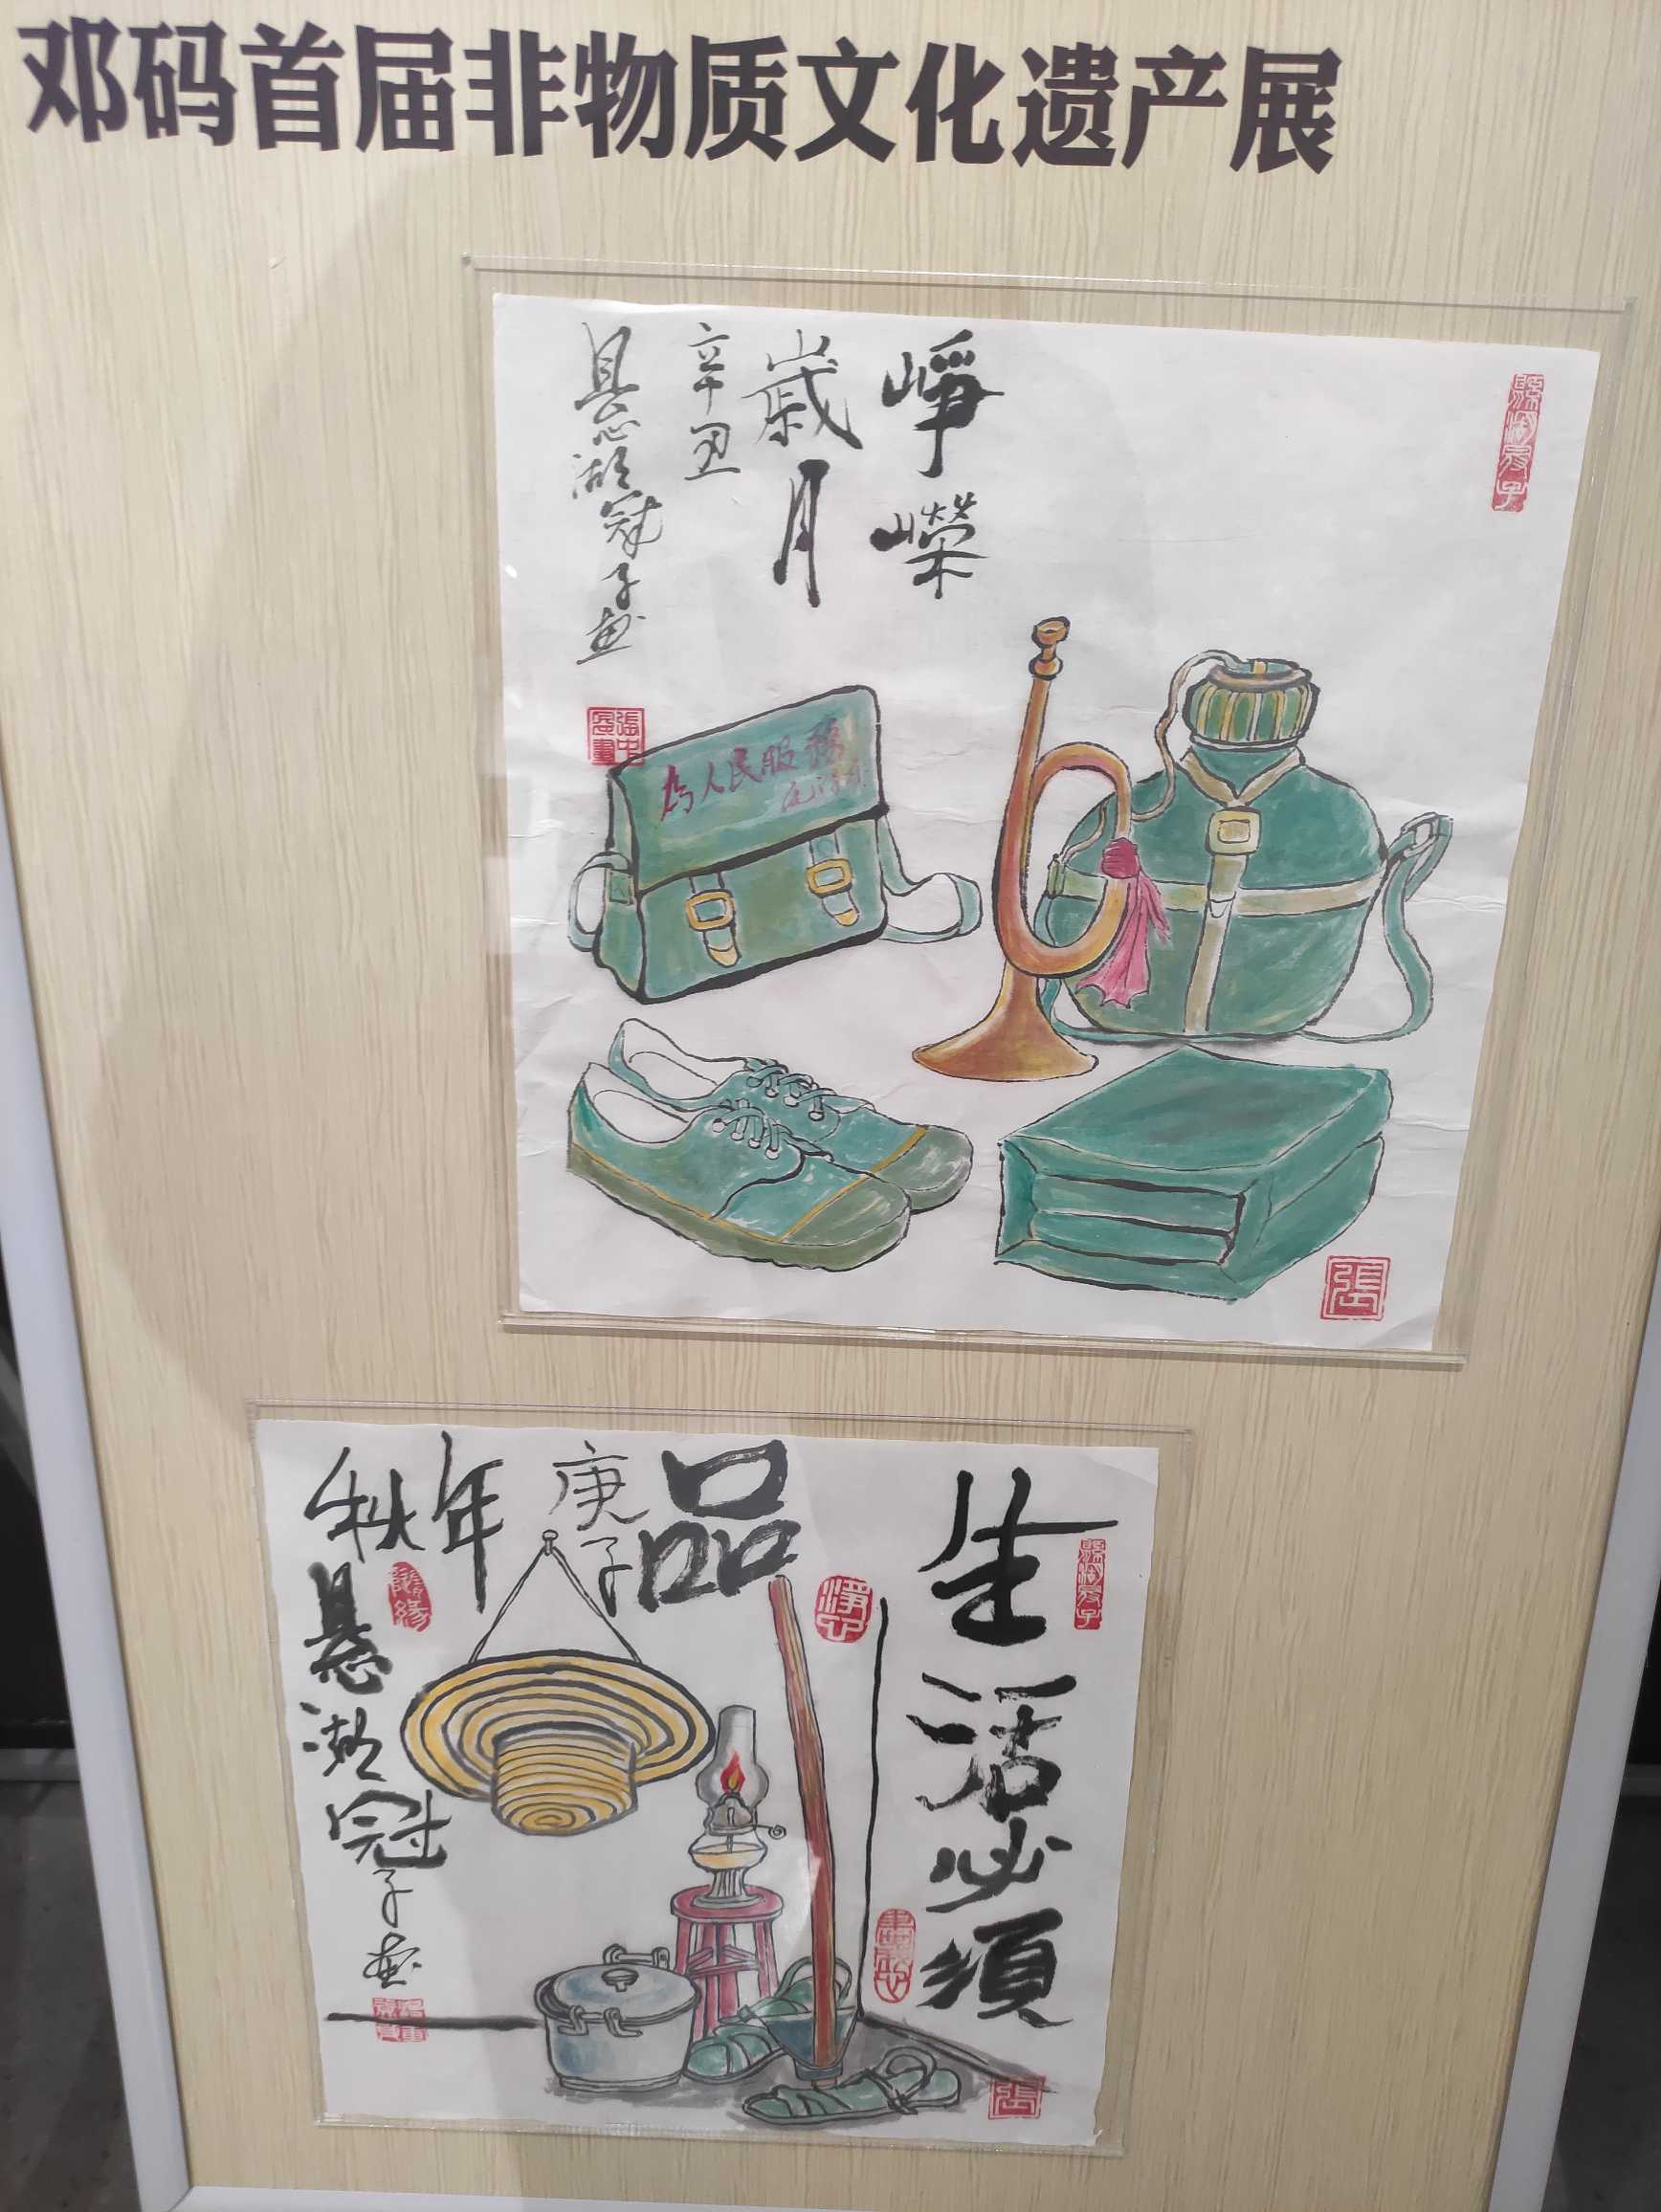 邓码首届非物质文化遗产展
峥嵘
歲月
辛丑
悬湖冠子画
為人民服務
張
生活必須
品
庚子
年
秋
悬湖冠子画
淨心
張